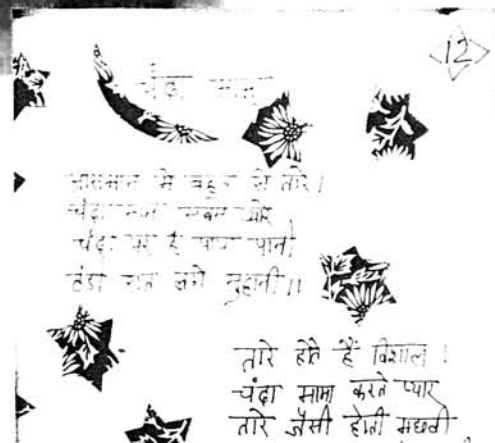 12
चंदा मामा
आसमान में बहुत से तारे।
चंदा मामा सबसे प्यारे
चंदा पर है पाया पानी
ठंडी रात लगे सुहानी॥
तारे होते हैं विशाल।
चंदा मामा करते प्यार
तारे जैसी होती मछली